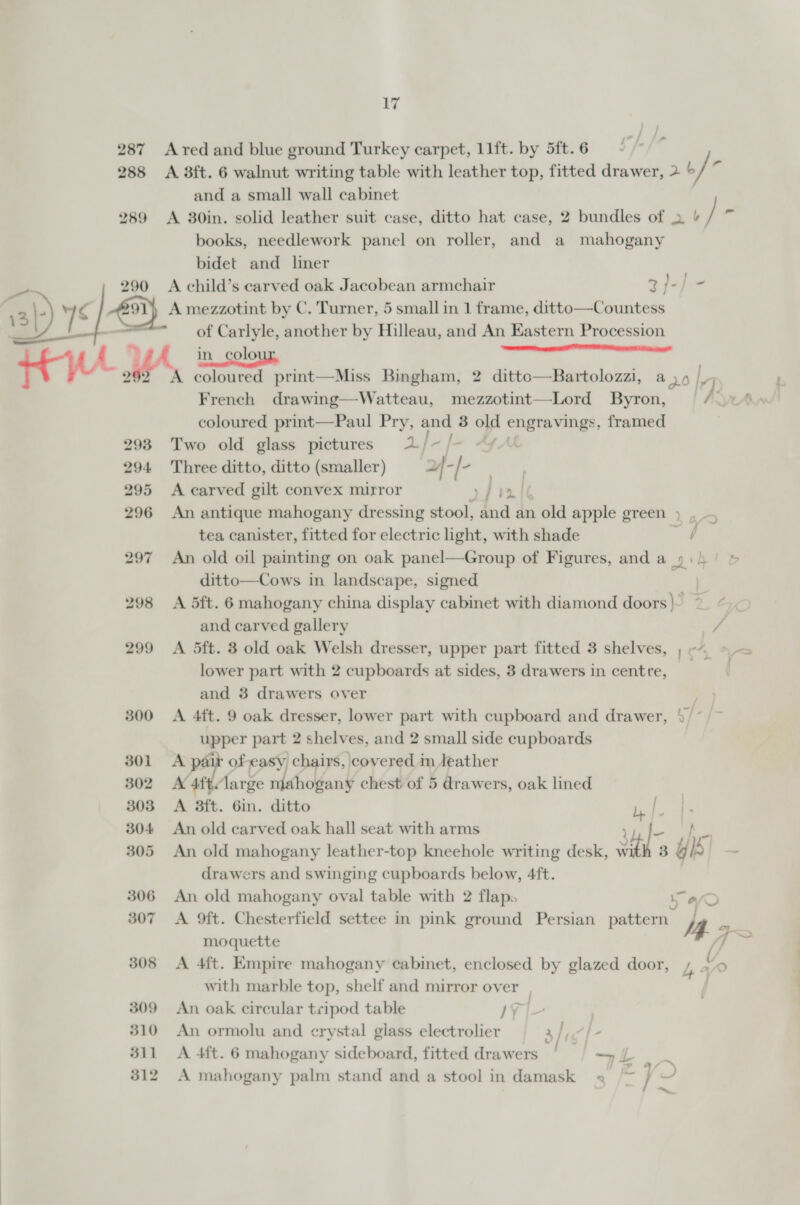 17
287 A red and blue ground Turkey carpet, 11ft. by 5ft. 6
288 A 3ft. 6 walnut writing table with leather top, fitted drawer,
and a small wall cabinet
289 A 30in. solid leather suit case, ditto hat case, 2 bundles of
books, needlework panel on roller, and a mahogany
bidet and liner
290 A child’s carved oak Jacobean armchair
291 A mezzotint by C. Turner, 5 small in 1 frame, ditto—Countess
of Carlyle, another by Hilleau, and An Eastern Procession
in colour
292 A coloured print—Miss Bingham, 2 ditto—Bartolozzi, a
French drawing—Watteau, mezzotint—Lord Byron,
coloured print—Paul Pry, and 3 old engravings, framed
293 Two old glass pictures
294 Three ditto, ditto (smaller)
295 A carved gilt convex mirror
296 An antique mahogany dressing stool, and an old apple green
tea canister, fitted for electric light, with shade
297 An old oil painting on oak panel—Group of Figures, and a
ditto—Cows in landscape, signed
298 A 5ft. 6 mahogany china display cabinet with diamond doors
and carved gallery
299 A 5ft. 3 old oak Welsh dresser, upper part fitted 3 shelves,
lower part with 2 cupboards at sides, 3 drawers in centre,
and 3 drawers over
300 A 4ft. 9 oak dresser, lower part with cupboard and drawer,
upper part 2 shelves, and 2 small side cupboards
301 A pair of easy chairs, covered in leather
302 A 4ft. large mahogany chest of 5 drawers, oak lined
303 A 3ft. 6in. ditto
304 An old carved oak hall seat with arms
305 An old mahogany leather-top kneehole writing desk, with 3
drawers and swinging cupboards below, 4ft.
306 An old mahogany oval table with 2 flaps
307 A 9ft. Chesterfield settee in pink ground Persian pattern
moquette
308 A 4ft. Empire mahogany cabinet, enclosed by glazed door,
with marble top, shelf and mirror over
309 An oak circular tripod table
310 An ormolu and crystal glass electrolier
311 A 4ft. 6 mahogany sideboard, fitted drawers
312 A mahogany palm stand and a stool in damask